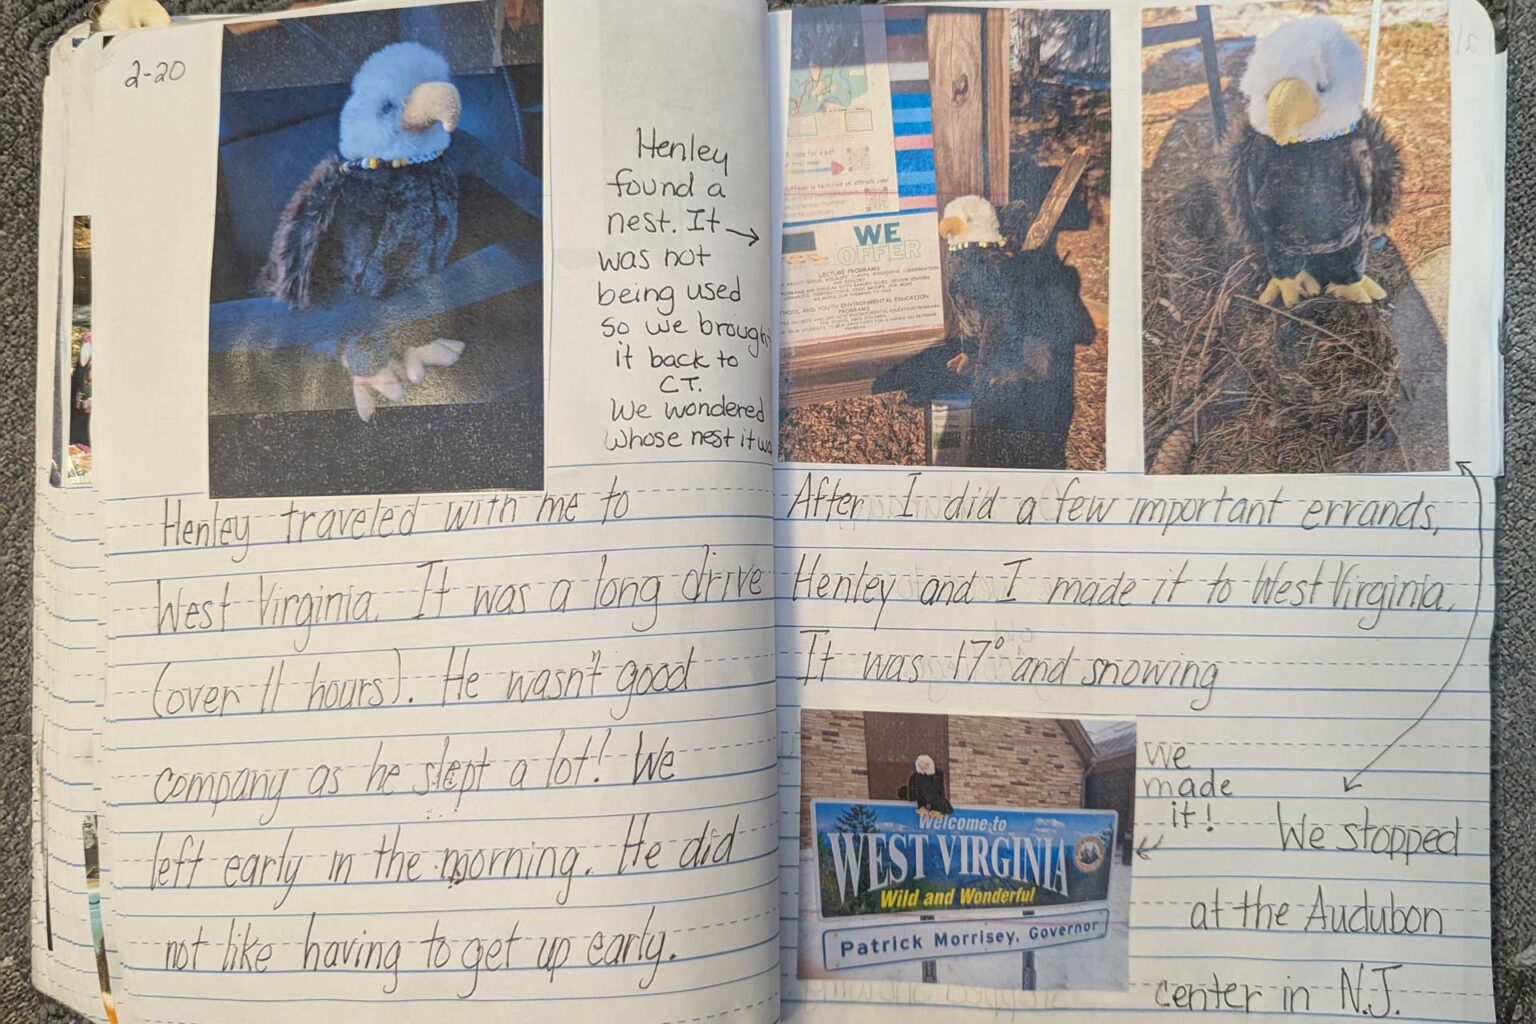 2-20
Henley
found a
nest. It
was not
being used
so we brought
it back to
CT.
We wondered
whose nest it
Henley traveled with me to
West Virginia. It was a long drive
(over 11 hours). He wasn't good
company as he slept a lot! We
left early in the morning. He did
not like having to get up early.
WE
OFFER
LECTURE PROGRAMS
After I did a few important errands,
Henley and I made it to West Virginia.
It was 17° and snowing
Welcome to
WEST VIRGINIA
Wild and Wonderful
Patrick Morrisey, Governor
We
made
it!
We stopped
at the Audubon
center in N.J.